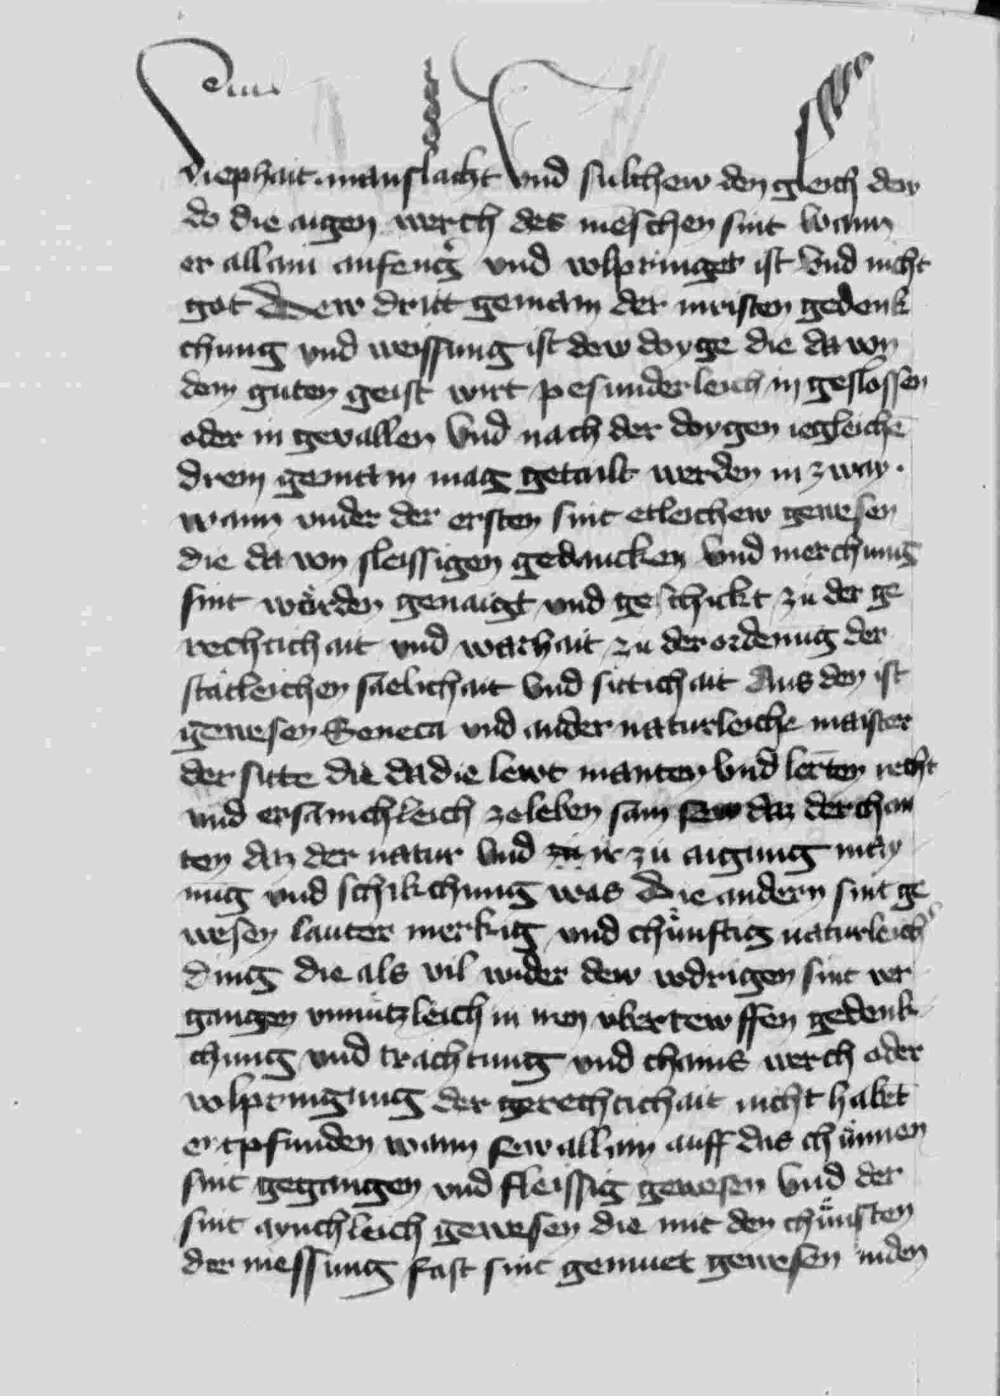 diephait manslacht vnd sulchew den gleich dew
do die aigen werch des meschen sint wann
er allain anfeng vnd volpringer ist vnd nicht
got Dew dritt gemain der inristen gedenk
chung vnd weissung ist dew doyge die da von
dem guten geist wirt pesunderleich in geslossen
oder in gevallen vnd nach der doygen iegleiche
drem gemain mag getailt werden in zway.
wann vnder der ersten sint etleichew gewesen
die da von fleissigen gedancken vnd merchung
sint wörden genaigt vnd geschickt zu der ge
rechtichait vnd warhait zu der ordenung der
statleichen saelichait vnd sitichait Aus den ist
gewesen Seneca vnd ander naturleiche maister
der sitte die da die lewt manten vnd lerten recht
vnd ersamchleich zeleben sam sew daz derchan
ten an der natur vnd ir zu aigung may
nūg vnd schikchung was Die andern sint ge
wesen lauter merkig vnd chünftig naturleich
ding die als vil wider dew vodrigen sint ver
gangen vnnützleich in iren vbertewffen gedenk
chung vnd trachtung vnd chains werch oder
volpringung der gerechtichait nicht habet
enpfunden wann sew allain auff das chünnen
sint gegangen vnd fleissig gewesen vnd der
sint aynchleich gewesen die mit den chünsten
der messung fast sint gemuet gewesen inden